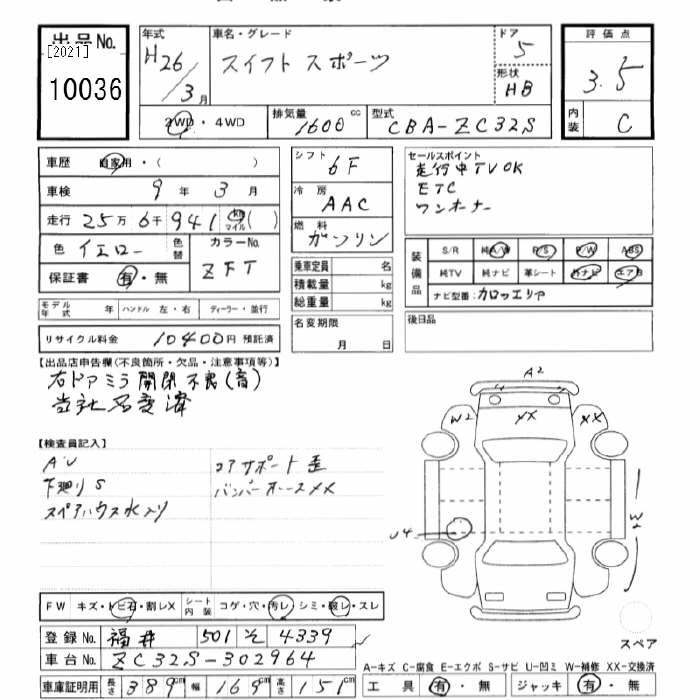 出品No. [2021] 10036
年式 H26/3月
車名・グレード スイフト スポーツ
ドア 5
形状 HB
評価点 3.5
内装 C
2WD・4WD
排気量 1600 cc
型式 CBA-ZC32S
車歴 自家用・( )
車検 9年 3月
走行 25万 6千 941 km マイル ( )
色 イエロー 色替
カラーNo. ZFT
保証書 有・無
シフト 6F
冷房 AAC
燃料 ガソリン
乗車定員 名
積載量 kg
総重量 kg
セールスポイント
走行中TVOK
ETC
ワンオーナー
装備品 S/R 純A/W P/S P/W ABS
純TV 純ナビ 革シート 社外ナビ エアB
ナビ型番: カロッエリア
モデル年式 年 ハンドル 左・右 ディーラー・並行
名変期限 月 日
後日品
リサイクル料金 10400円 預託済
【出品店申告欄(不良箇所・欠品・注意事項等)】
右ドアミラ開閉不良(音)
当社名変済
【検査員記入】
AU
下廻りS
スペアハウス水入り
コアサポート歪
バンパーホースXX
A2
W2 XX XX
U4
W2
スペア
FW キズ・トビ石・割レX シート内装 コゲ・穴・汚レ・シミ・破レ・スレ
登録No. 福井 501 そ 4339
車台No. ZC32S-302964
車庫証明用 長さ 389cm 幅 169cm 高さ 151cm
A-キズ C-腐食 E-エクボ S-サビ U-凹ミ W-補修 XX-交換済
工具 有・無 ジャッキ 有・無